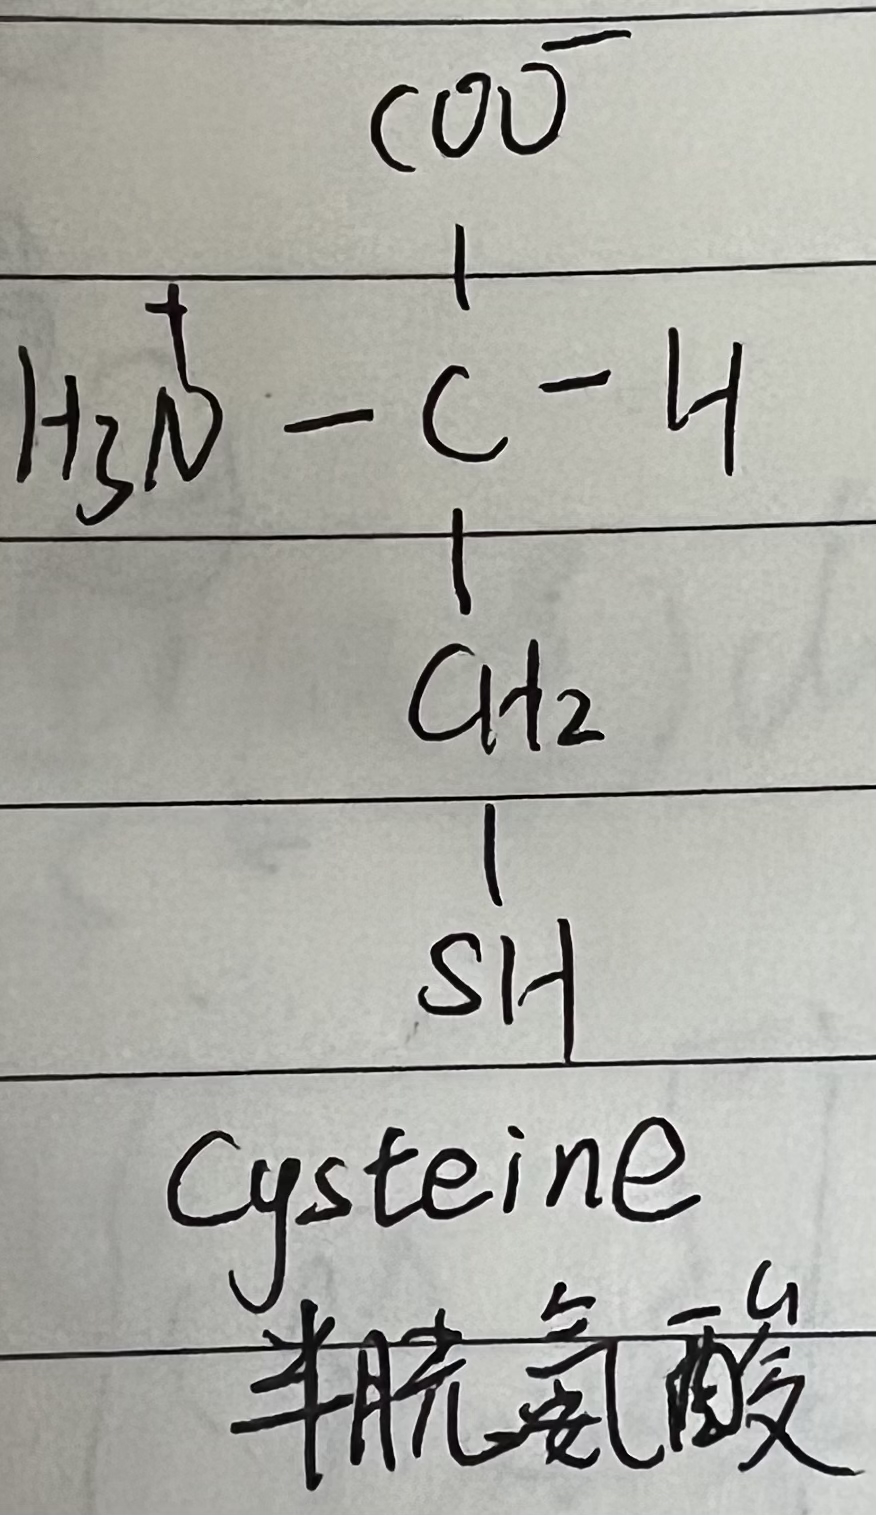 COO⁻
|
H₃N⁺ — C — H
|
CH₂
|
SH
Cysteine
半胱氨酸